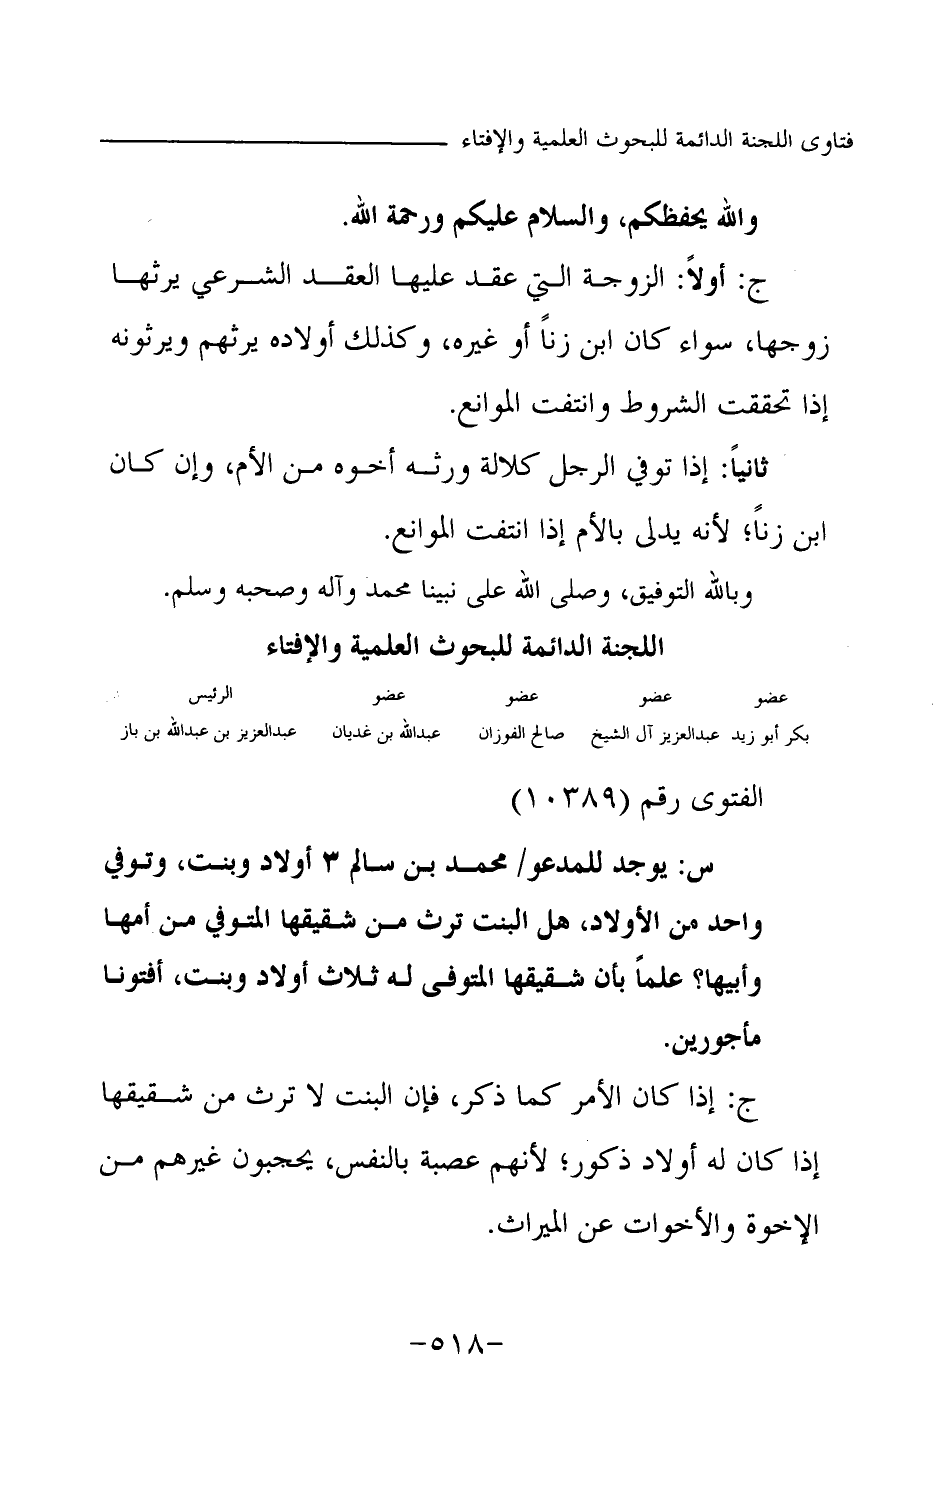 فتاوى اللجنة الدائمة للبحوث العلمية والإفتاء
والله يحفظكم، والسلام عليكم ورحمة الله.
ج: أولاً: الزوجة التي عقد عليها العقد الشرعي يرثها
زوجها، سواء كان ابن زناً أو غيره، وكذلك أولاده يرثهم ويرثونه
إذا تحققت الشروط وانتفت الموانع.
ثانياً: إذا توفي الرجل كلالة ورثه أخوه من الأم، وإن كان
ابن زناً؛ لأنه يدلى بالأم إذا انتفت الموانع.
وبالله التوفيق، وصلى الله على نبينا محمد وآله وصحبه وسلم.
اللجنة الدائمة للبحوث العلمية والإفتاء
عضو عضو عضو عضو الرئيس
بكر أبو زيد عبدالعزيز آل الشيخ صالح الفوزان عبدالله بن غديان عبدالعزيز بن عبدالله بن باز
الفتوى رقم (١٠٣٨٩)
س: يوجد للمدعو/ محمد بن سالم ٣ أولاد وبنت، وتوفي
واحد من الأولاد، هل البنت ترث من شقيقها المتوفي من أمها
وأبيها؟ علماً بأن شقيقها المتوفى له ثلاث أولاد وبنت، أفتونا
مأجورين.
ج: إذا كان الأمر كما ذكر، فإن البنت لا ترث من شقيقها
إذا كان له أولاد ذكور؛ لأنهم عصبة بالنفس، يحجبون غيرهم من
الإخوة والأخوات عن الميراث.
-٥١٨-